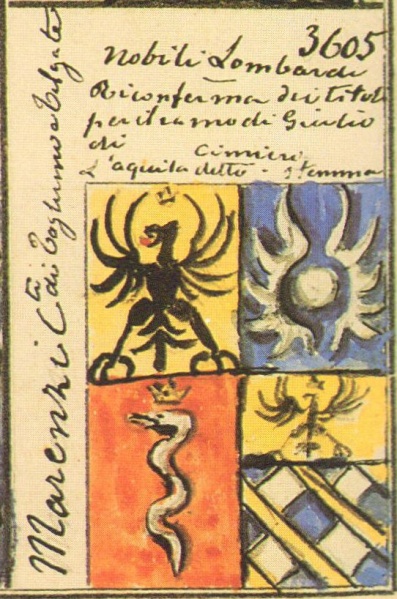 3605
Nobili Lombardi
Riconferma dei titoli
per il ramo di Giulio
di Cimiero
L'aquila detto - stemma
Marenzi Cti di Tagliuno e Telgate